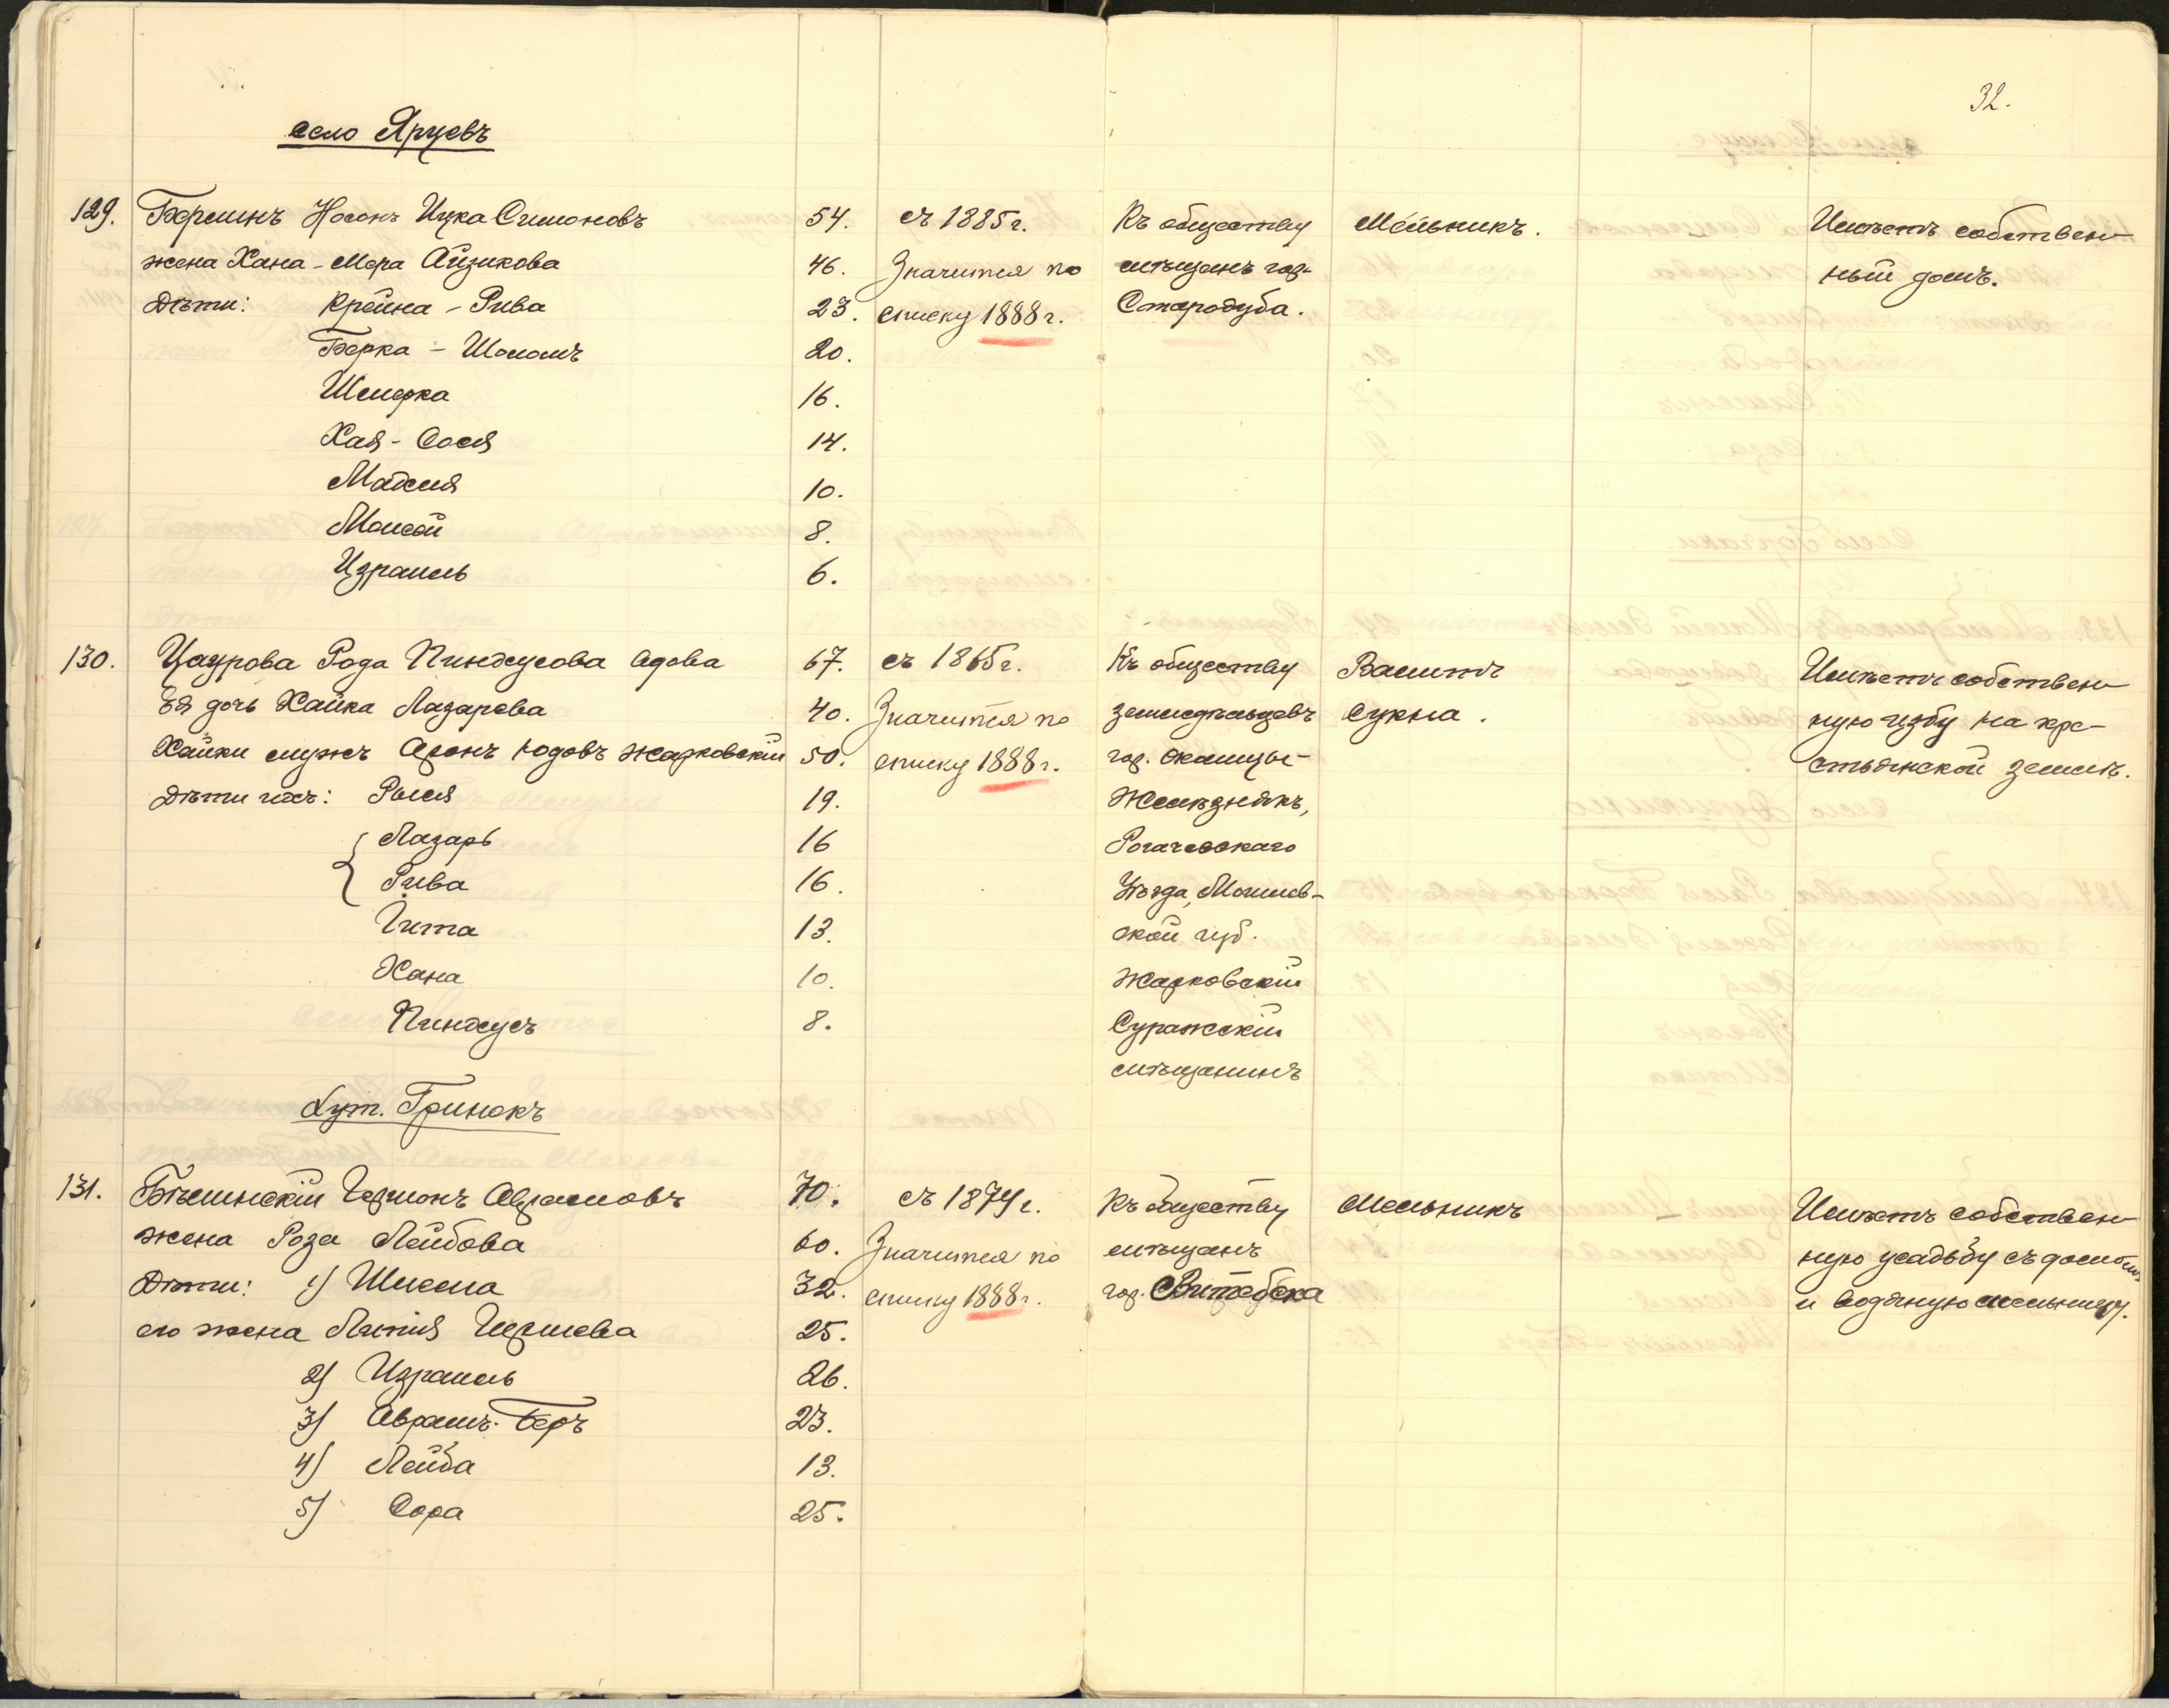 32.
село Ярцевъ
129. Берлинъ Носонъ Ицка Симоновъ 54. съ 1885 г. Къ обществу Мельникъ. Имѣетъ собствен-
жена Хана-Мера Айзикова 46. Значится по мѣщанъ гор. ный домъ.
Дѣти: Крейна-Рива 23. списку 1888 г. Стародуба.
Берка-Шоломъ 20.
Шмерка 16.
Хая-Сося 14.
8.
Моисей
10.
Израиль 6.
130. Рода Пинхусова вдова 67. съ 1865 г. Къ обществу Валитъ Имѣетъ собствен-
Ея дочь Хайка Лазарева 40. Значится по земледѣльцевъ сукна. ную избу на кре-
Хайки мужъ Аронъ Юдовъ Жарковскій 50. списку 1888 г. гор. стьянской землѣ.
Дѣти ихъ: 19. Желѣзнякъ,
Лазарь 16 Рогачевскаго
Рива 16. Уѣзда, Могилев-
Гита 13. ской губ.
Хана 10. Жарковскій
Пинхусъ 8. Суражскій
мѣщанинъ
хут. Гринокъ
131. Бѣлинскій Гершонъ Абрамовъ 70. съ 1874 г. Къ обществу Мельникъ Имѣетъ собствен-
жена Роза Лейбова 60. Значится по мѣщанъ ную усадьбу съ домомъ
Дѣти: 1) 32. списку 1888 г. гор. Витебска и водяную мельницу.
его жена Гершева 25.
2) Израиль 26.
3) Аврамъ-Беръ 23.
4) Лейба 13.
5) Сора 25.